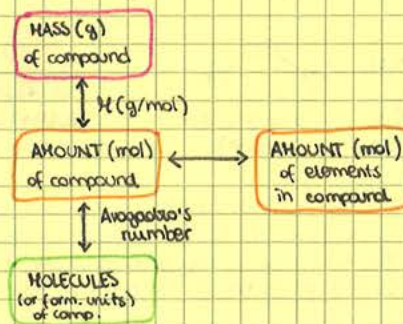 MASS (g)
of compound
M (g/mol)
AMOUNT (mol)
of compound
AMOUNT (mol)
of elements
in compound
Avogadro's
number
MOLECULES
(or form. units)
of comp.